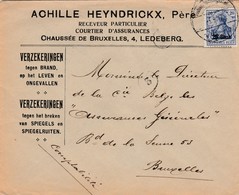 ACHILLE HEYNDRICKX, Père
RECEVEUR PARTICULIER
COURTIER D'ASSURANCES
CHAUSSÉE DE BRUXELLES, 4, LEDEBERG.
VERZEKERINGEN
tegen BRAND,
op het LEVEN en
ONGEVALLEN
VERZEKERINGEN
tegen het breken
van SPIEGELS en
SPIEGELRUITEN.
Monsieur le Directeur
de la Cie Belge des
"Assurances Générales"
Bd de la Senne 53
Bruxelles
Comptabilité